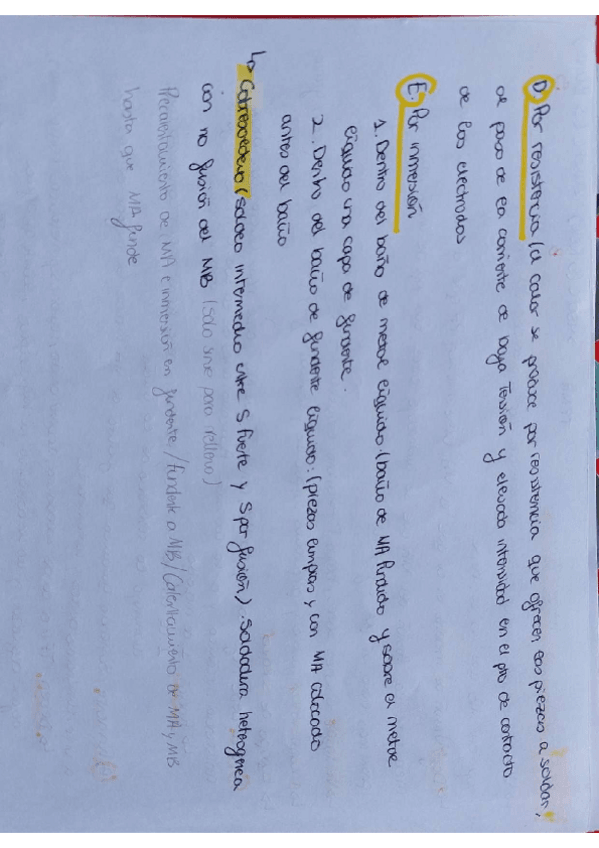 D. Por resistencia (el calor se produce por resistencia que ofrecen las piezas a soldar,
al paso de la corriente de baja tensión y elevada intensidad en el pto de contacto
de los electrodos
E. Por inmersión
1. Dentro del baño de metal líquido (baño de MA fundido y sobre el metal
líquido una capa de fundente.
2. Dentro del baño de fundente líquido: (piezas limpias y con MA colocado
antes del baño
↳ Cobresoldeo (soldeo intermedio entre S fuerte y S por fusión). Soldadura heterogénea
con no fusión del MB (sólo sirve para relleno)
Recalentamiento de MA e inmersión en fundente / Fundente a MB / Calentamiento de MA y MB
hasta que MA funde